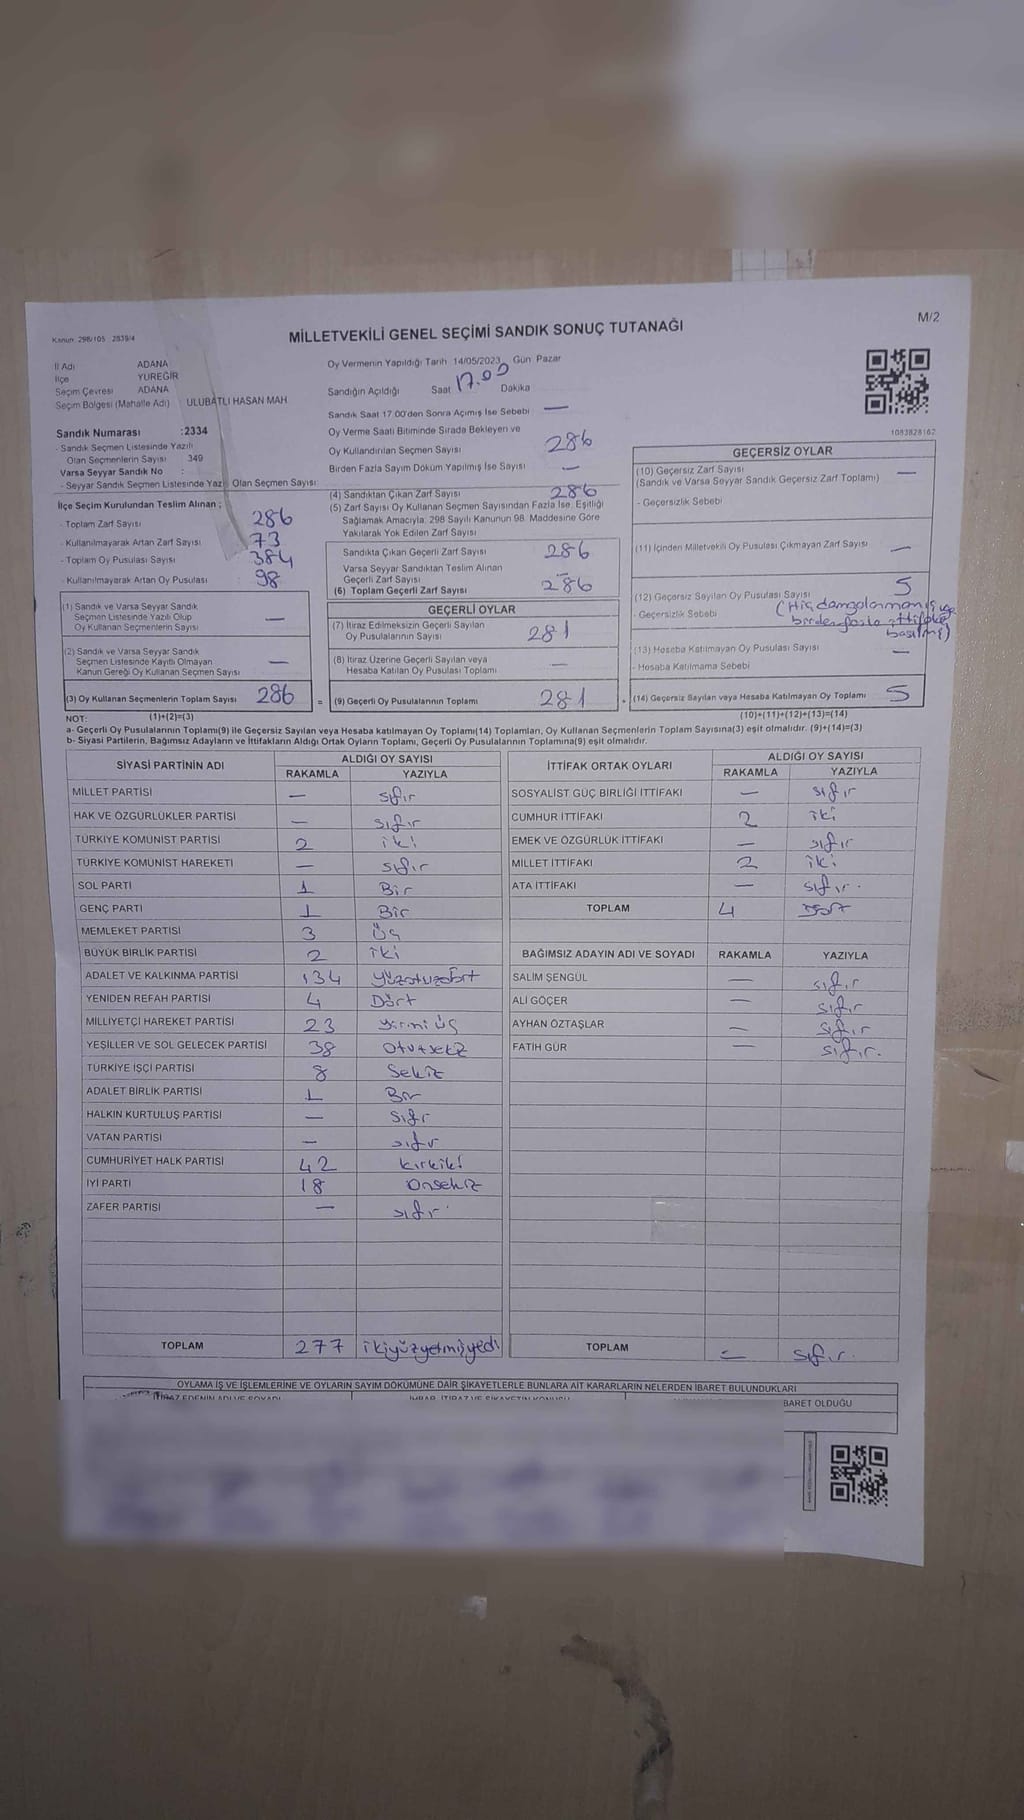 M/2
Kanun 298/105 2839/4
MİLLETVEKİLİ GENEL SEÇİMİ SANDIK SONUÇ TUTANAĞI
İl Adı ADANA
İlçe YÜREĞİR
Seçim Çevresi ADANA
Seçim Bölgesi (Mahalle Adı) ULUBATLI HASAN MAH.
Sandık Numarası :2334
- Sandık Seçmen Listesinde Yazılı
Olan Seçmenlerin Sayısı 349
Varsa Seyyar Sandık No :
- Seyyar Sandık Seçmen Listesinde Yazılı Olan Seçmen Sayısı:
İlçe Seçim Kurulundan Teslim Alınan ;
- Toplam Zarf Sayısı 286
- Kullanılmayarak Artan Zarf Sayısı 73
- Toplam Oy Pusulası Sayısı 384
- Kullanılmayarak Artan Oy Pusulası 98
(1) Sandık ve Varsa Seyyar Sandık
Seçmen Listesinde Yazılı Olup
Oy Kullanan Seçmenlerin Sayısı —
(2) Sandık ve Varsa Seyyar Sandık
Seçmen Listesinde Kayıtlı Olmayan
Kanun Gereği Oy Kullanan Seçmen Sayısı —
(3) Oy Kullanan Seçmenlerin Toplam Sayısı 286 =
Oy Vermenin Yapıldığı Tarih 14/05/2023 Gün Pazar
Sandığın Açıldığı Saat 17.00 Dakika
Sandık Saat 17.00'den Sonra Açımış İse Sebebi —
Oy Verme Saati Bitiminde Sırada Bekleyen ve
Oy Kullandırılan Seçmen Sayısı 286
Birden Fazla Sayım Döküm Yapılmış İse Sayısı —
(4) Sandıktan Çıkan Zarf Sayısı 286
(5) Zarf Sayısı Oy Kullanan Seçmen Sayısından Fazla İse, Eşitliği
Sağlamak Amacıyla, 298 Sayılı Kanunun 98. Maddesine Göre
Yakılarak Yok Edilen Zarf Sayısı
Sandıkta Çıkan Geçerli Zarf Sayısı 286
Varsa Seyyar Sandıktan Teslim Alınan
Geçerli Zarf Sayısı —
(6) Toplam Geçerli Zarf Sayısı 286
GEÇERLİ OYLAR
(7) İtiraz Edilmeksizin Geçerli Sayılan
Oy Pusulalarının Sayısı 281
(8) İtiraz Üzerine Geçerli Sayılan veya
Hesaba Katılan Oy Pusulası Toplamı —
(9) Geçerli Oy Pusulalarının Toplamı 281
1083828162
GEÇERSİZ OYLAR
(10) Geçersiz Zarf Sayısı —
(Sandık ve Varsa Seyyar Sandık Geçersiz Zarf Toplamı)
- Geçersizlik Sebebi
(11) İçinden Milletvekili Oy Pusulası Çıkmayan Zarf Sayısı —
(12) Geçersiz Sayılan Oy Pusulası Sayısı 5
- Geçersizlik Sebebi (Hiç damgalanmamış veya
birden fazla ittifaka
basılmış)
(13) Hesaba Katılmayan Oy Pusulası Sayısı —
- Hesaba Katılmama Sebebi
(14) Geçersiz Sayılan veya Hesaba Katılmayan Oy Toplamı 5
NOT: (1)+(2)=(3) (10)+(11)+(12)+(13)=(14)
a- Geçerli Oy Pusulalarının Toplamı(9) ile Geçersiz Sayılan veya Hesaba katılmayan Oy Toplamı(14) Toplamları, Oy Kullanan Seçmenlerin Toplam Sayısına(3) eşit olmalıdır. (9)+(14)=(3)
b- Siyasi Partilerin, Bağımsız Adayların ve İttifakların Aldığı Ortak Oyların Toplamı, Geçerli Oy Pusulalarının Toplamına(9) eşit olmalıdır.
SİYASİ PARTİNİN ADI ALDIĞI OY SAYISI
RAKAMLA YAZIYLA
MİLLET PARTİSİ — sıfır
HAK VE ÖZGÜRLÜKLER PARTİSİ — sıfır
TÜRKİYE KOMÜNİST PARTİSİ 2 iki
TÜRKİYE KOMÜNİST HAREKETİ — sıfır
SOL PARTİ 1 Bir
GENÇ PARTİ 1 Bir
MEMLEKET PARTİSİ 3 Üç
BÜYÜK BİRLİK PARTİSİ 2 iki
ADALET VE KALKINMA PARTİSİ 134 yüzotuzdört
YENİDEN REFAH PARTİSİ 4 Dört
MİLLİYETÇİ HAREKET PARTİSİ 23 yirmi üç
YEŞİLLER VE SOL GELECEK PARTİSİ 38 otuzsekiz
TÜRKİYE İŞÇİ PARTİSİ 8 Sekiz
ADALET BİRLİK PARTİSİ 1 Bir
HALKIN KURTULUŞ PARTİSİ — sıfır
VATAN PARTİSİ — sıfır
CUMHURİYET HALK PARTİSİ 42 kırkiki
İYİ PARTİ 18 onsekiz
ZAFER PARTİSİ — sıfır
TOPLAM 277 ikiyüzyetmişyedi
İTTİFAK ORTAK OYLARI ALDIĞI OY SAYISI
RAKAMLA YAZIYLA
SOSYALİST GÜÇ BİRLİĞİ İTTİFAKI — sıfır
CUMHUR İTTİFAKI 2 iki
EMEK VE ÖZGÜRLÜK İTTİFAKI — sıfır
MİLLET İTTİFAKI 2 iki
ATA İTTİFAKI — sıfır.
TOPLAM 4 Dört
BAĞIMSIZ ADAYIN ADI VE SOYADI RAKAMLA YAZIYLA
SALİM ŞENGÜL — sıfır
ALİ GÖÇER — sıfır
AYHAN ÖZTAŞLAR — sıfır
FATİH GÜR — sıfır.
TOPLAM — sıfır.
OYLAMA İŞ VE İŞLEMLERİNE VE OYLARIN SAYIM DÖKÜMÜNE DAİR ŞİKAYETLERLE BUNLARA AİT KARARLARIN NELERDEN İBARET BULUNDUKLARI
İTİRAZ EDENİN ADI VE SOYADI İHBAR, İTİRAZ VE ŞİKAYETİN KONUSU BARET OLDUĞU